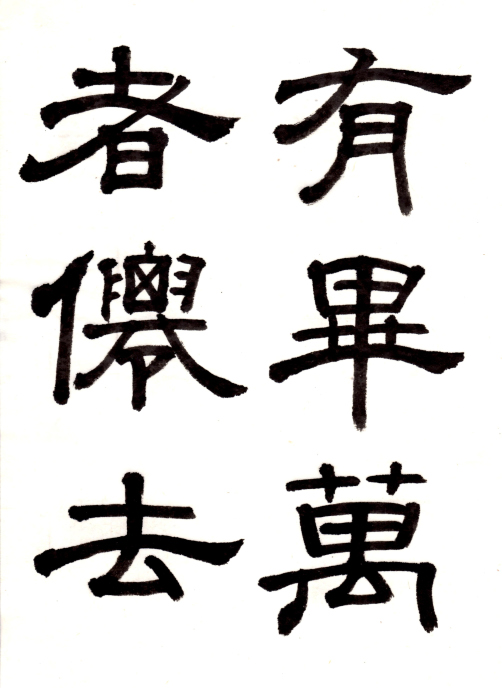 有畢萬
者僊去